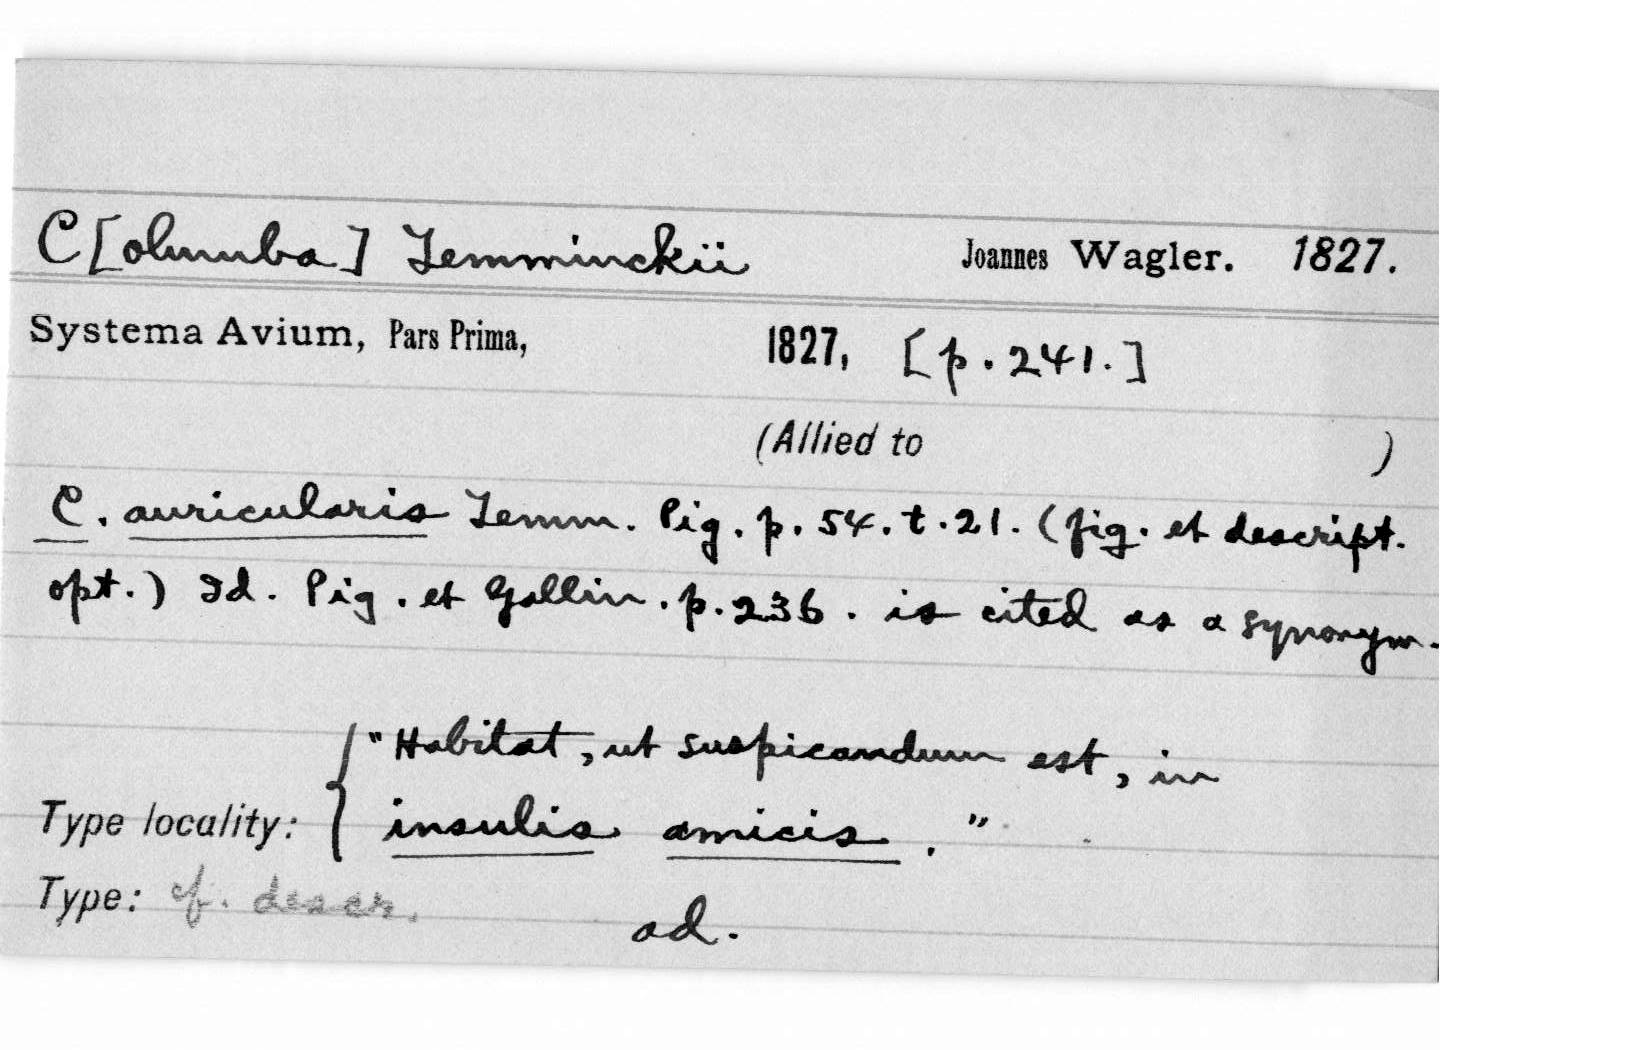 C[olumba] Temminckii Joannes Wagler. 1827.
Systema Avium, Pars Prima, 1827, [p. 241.]
(Allied to )
C. auricularis Temm. Pig. p. 54. t. 21. (fig. et descript.
opt.) Id. Pig. et Gallin. p. 236. is cited as a synonym.
"Habitat, ut suspicandum est, in
Type locality: { insulis amicis."
Type: cf. descr. ad.